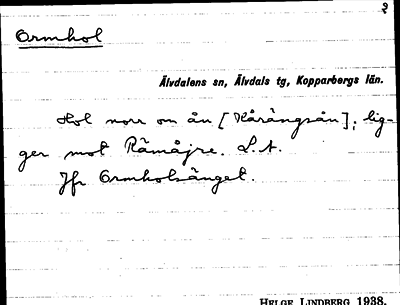 2
Ormhol
Älvdalens sn, Älvdals tg, Kopparbergs län.
Hol norr om ån [Kårängsån]; lig-
ger mot Råmåjre. L.A.
Jfr Ormholsänget.
HELGE LINDBERG 1938.